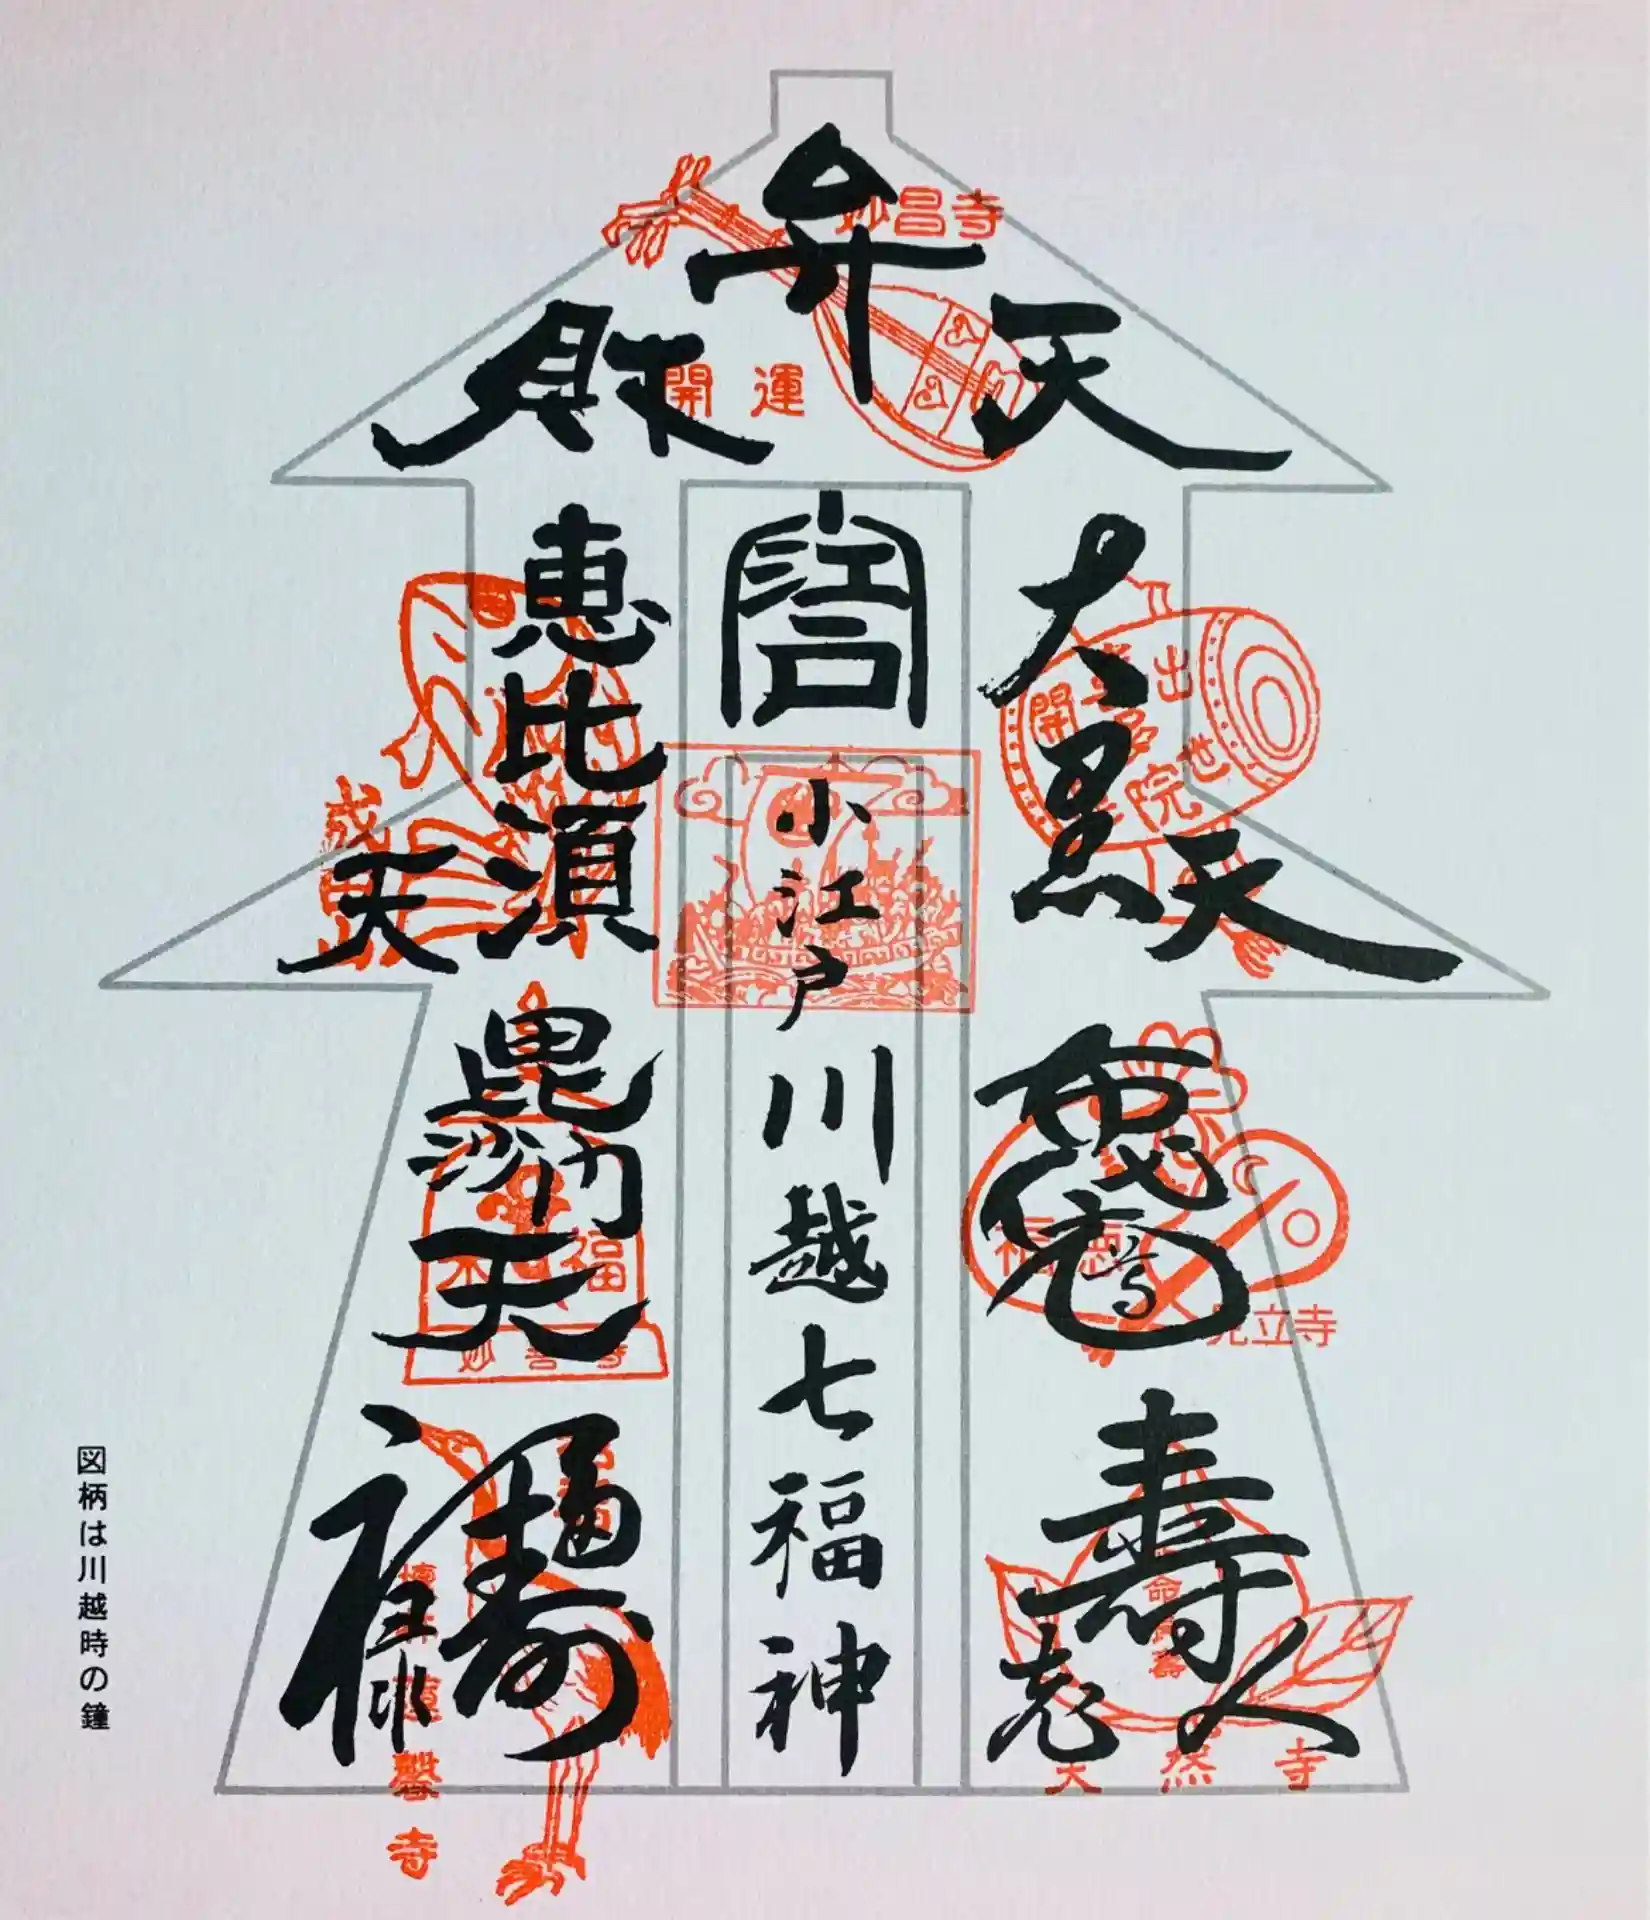 弁
財
天
大黒天
恵比須
天
毘沙門天
布袋尊
寿老人
福禄寿
小江戸川越七福神
妙昌寺
開運
出世
開
院
成
福徳
見立寺
福
妙善寺
天然寺
蓮馨寺
図柄は川越時の鐘